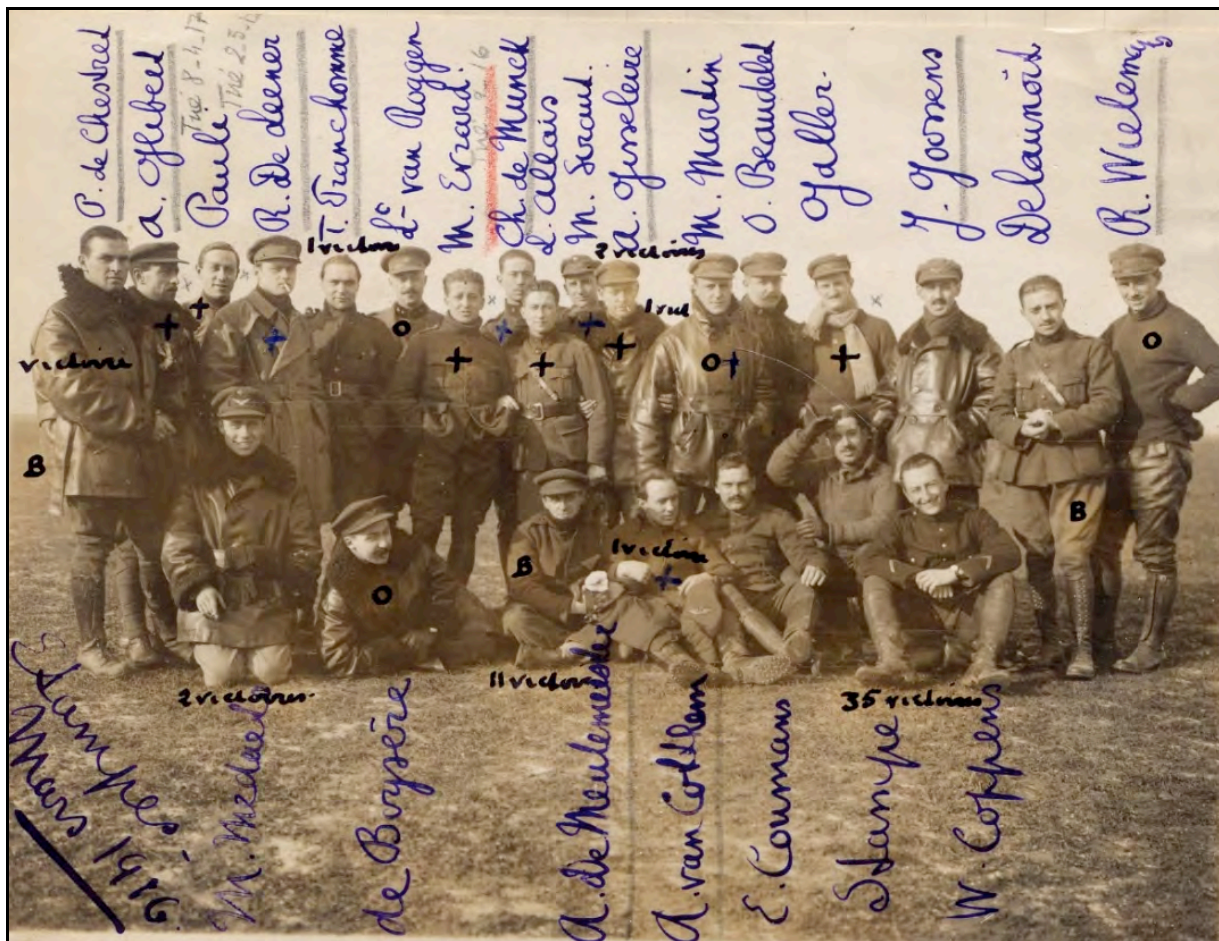 P. de Chestret
A. Hubert
Pauli
Tué 8-4-17
R. De Leener
T. Franchomme
Lt van Roggen
M. Evrard.
Ch. de Munck
L. Allais
M. Siraud.
A. Gisseleire
M. Martin
O. Beaudelet
Jaller.
J. Goossens
Delaunoit
R. Wielemans
1 victoire
2 victoires
1 vict
victoire
O
O
O
B
B
B
1 victoire
O
2 victoires.
11 victoires
35 victoires
Étampes
Mars 1916
M. Medaets
de Buysère
A. de Meulemeester
A. van Cotthem
E. Coumans
Stampe
W. Coppens